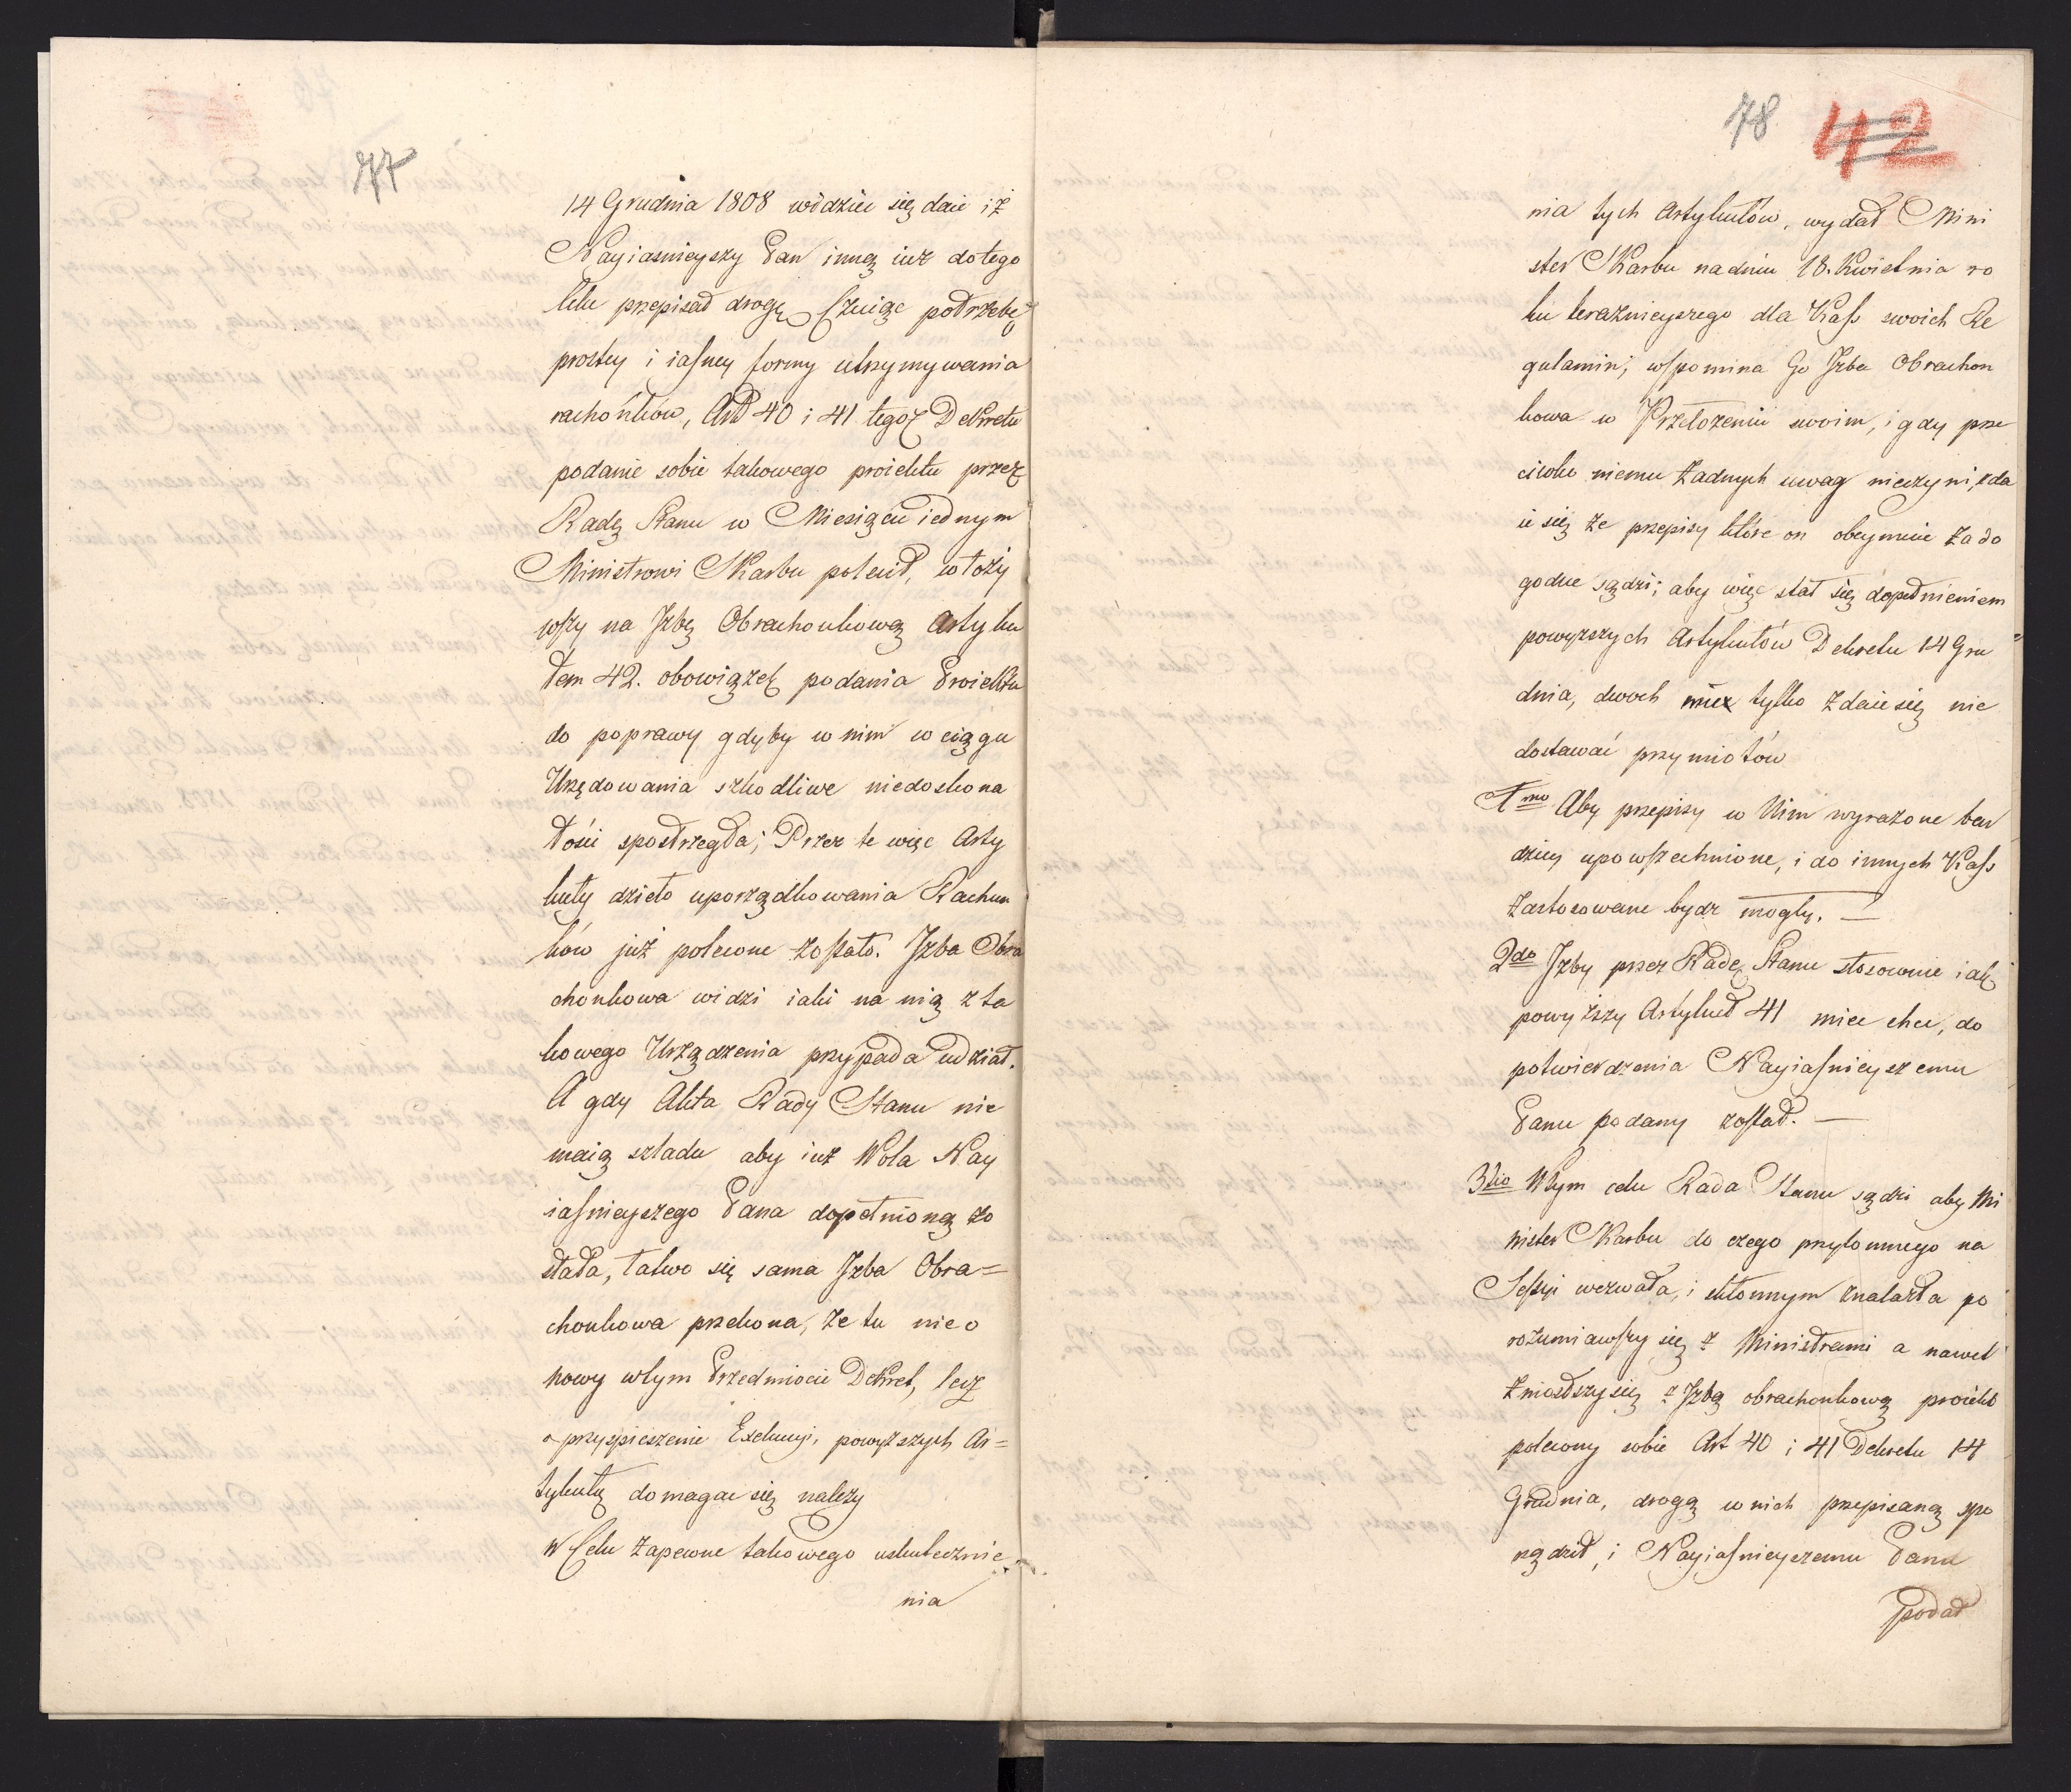 77
14 Grudnia 1808 widzieć się daie iż
Nayiaśnieyszy Pan inną iuż do tego
Celu przepisał drogę Czuiąc potrzebę
prostey i iasney formy utrzymywania
rachónków, Art 40 i 41 tegoż Dekretu
podanie sobie takowego proiektu przez
Radę Stanu w Miesiącu iednym
Ministrowi Skarbu polecił, włoży
wszy na Izbę Obrachonkową Artyku
łem 42. obowiązek podania Proiektu
do poprawy gdyby w nim w ciągu
Urzędowania szkodliwe niedoskona
łości spostrzegła; Przez te więc Arty
kuły dzieło uporządkowania Rachun
ków już polecone zostało. Izba Obra
chonkowa widzi iaki na nią z ta
kowego Urządzenia przypada udział.
A gdy Akta Rady Stanu nie
maią szladu aby iuż Wola Nay
iaśnieyszego Pana dopełnioną zo
stała, łatwo się sama Izba Obra=
chonkowa przekona, że tu nie o
nowy w tym Przedmiocie Dekret, lecz
o przyspieszenie Exekucyi, powyższych Ar=
tykułų domagać się należy
W Celu zapewne takowego uskutecznie
nia
78 42
nia tych Artykułów, wydał Mini
ster Skarbu na dniu 18. Kwietnia ro
ku teraznieyszego dla Kass swoich Re
gulamin; wspomina Go Izba Obrachon
kowa w Przełożeniu swoim, i gdy prze
ciwko niemu żadnych uwag nieczyni, zda
ie się że przepisy które on obeymuie za do
godne sądzi; aby więc stał się dopełnieniem
powyzszych Artykułów Dekretu 14 Gru
dnia, dwoch mu tylko zdaie się nie
dostawać przymiotów
1mo Aby przepisy w Nim wyrażone bar
dziey upowszechnione, i do innych Kass
zastosowane bydz mogły. —
2do Izby przez Radę Stanu stosownie iak
powyższy Artykuł 41 mieć chce, do
potwierdzenia Nayiaśnieyszemu
Panu podany został. —
3tio W tym celu Rada Stanu sądzi aby Mi
nister Skarbu do czego przytomnego na
Sessyi wezwała, i skłonnym znalazła po
rozumiawszy się z Ministrami a nawet
zniosłszy się z Izbą obrachonkową proiekt
polecony sobie Art 40 i 41 Dekretu 14
Grudnia, drogą w nich przepisaną spo
rządził, i Nayiaśnieyszemu Panu
podał